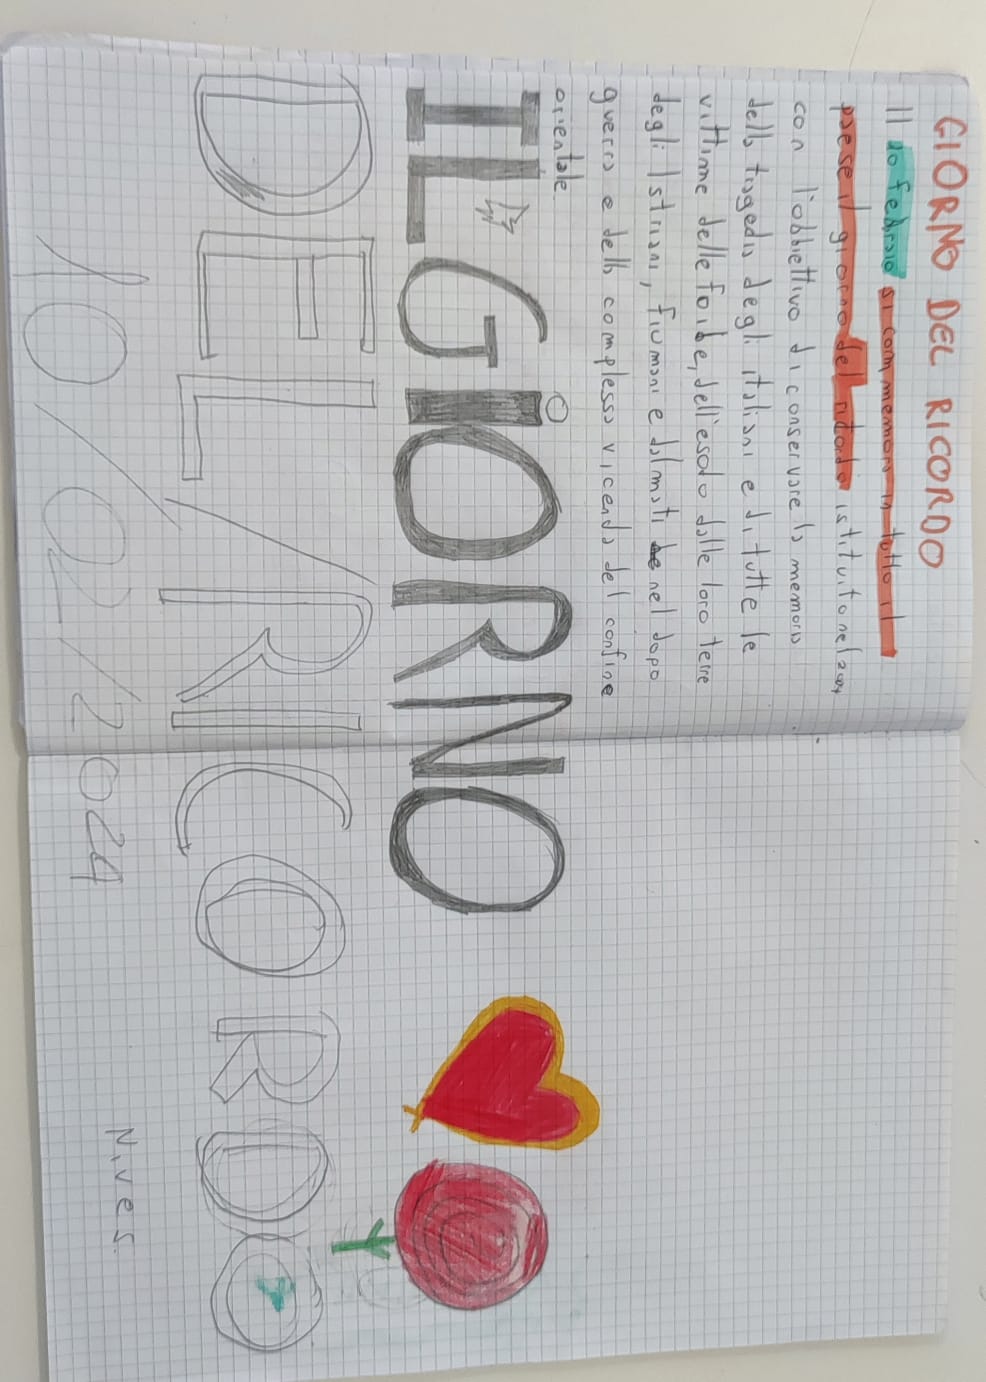 GIORNO DEL RICORDO
Il 10 febraio si commemora in tutto il
paese il giorno del ricordo istituito nel 2004
con l'obbiettivo di conservare la memoria
della tragedia degli italiani e di tutte le
vittime delle foibe, dell'esodo dalle loro terre
degli Istriani, fiumani e dalmati nel dopo
guerra e della complessa vicenda del confine
orientale
IL GIORNO
DEL RICORDO
10/02/2024
Nives.